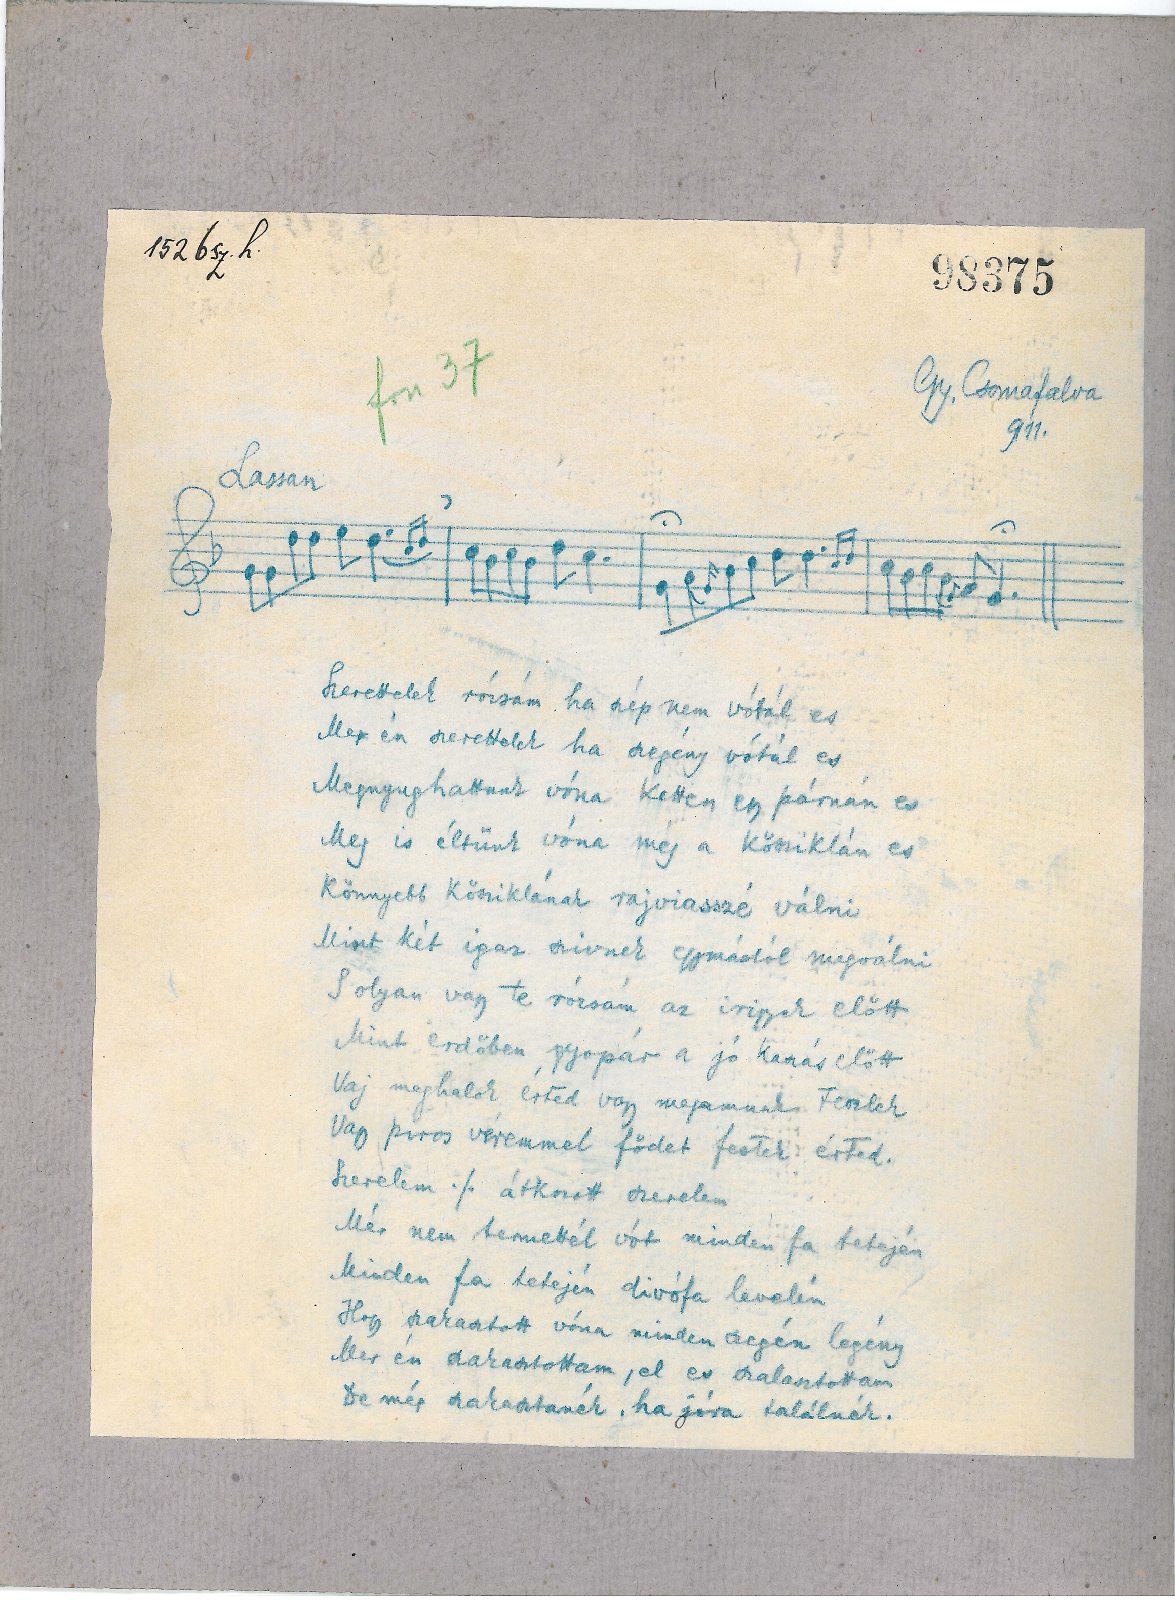 152 b sz. h.
98375
fon 37
Gy. Csomafalva
911.
Lassan
Szerettelek rózsám ha szép nem vótál es
Mer én szerettelek ha szegény vótál es
Megnyughattunk vóna ketten egy párnán es
Meg is éltünk vóna még a kősziklán es
Könnyebb kősziklának rajviasszé válni
Mint két igaz szivnek egymástól megválni
S olyan vagy te rózsám az irigyek előtt
Mint erdőben gyopár a jó kaszás előtt
Vaj meghalok érted vagy magamnak teszlek
Vagy piros véremmel födet festek érted.
Szerelem ./. átkozott szerelem
Mér nem termettél vót minden fa tetején
Minden fa tetején divófa levelén
Hogy szakasztott vóna minden szegén legény
Mer én szakasztottam, el es szalasztottam
De még szakasztanék, ha jóra találnék.